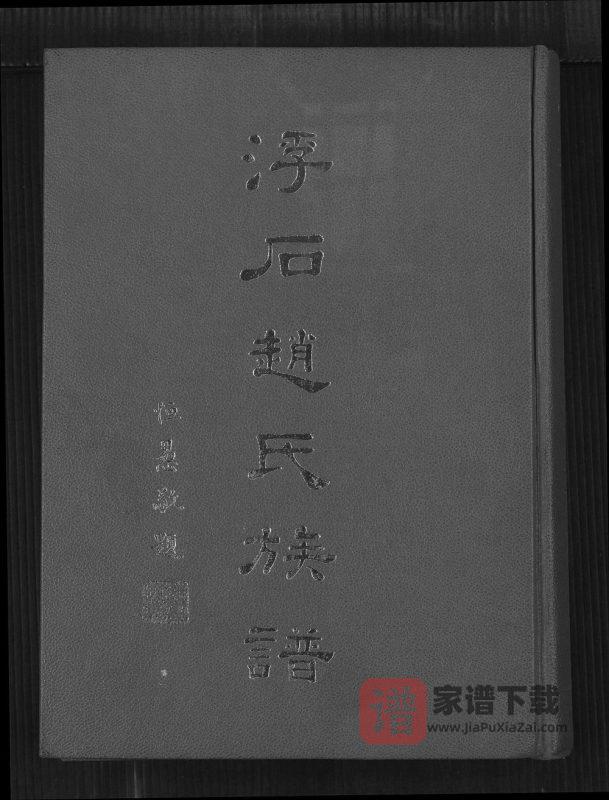 浮石趙氏族譜
恒㫤敬題
谱 家谱下载
www.jiaPuXiaZai.com